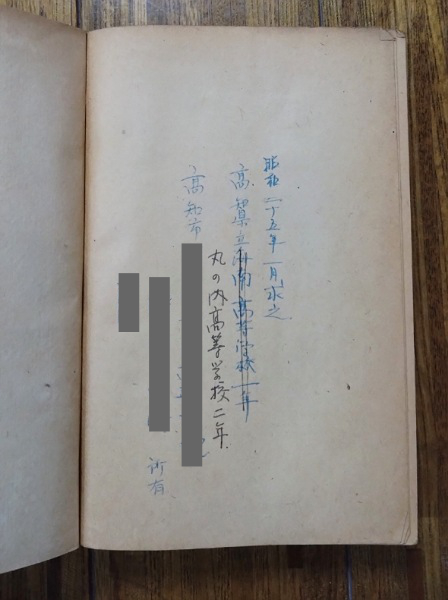 昭和二十五年一月求之
高知県立海南高等学校一年
丸の内高等学校二年
高知市
所有